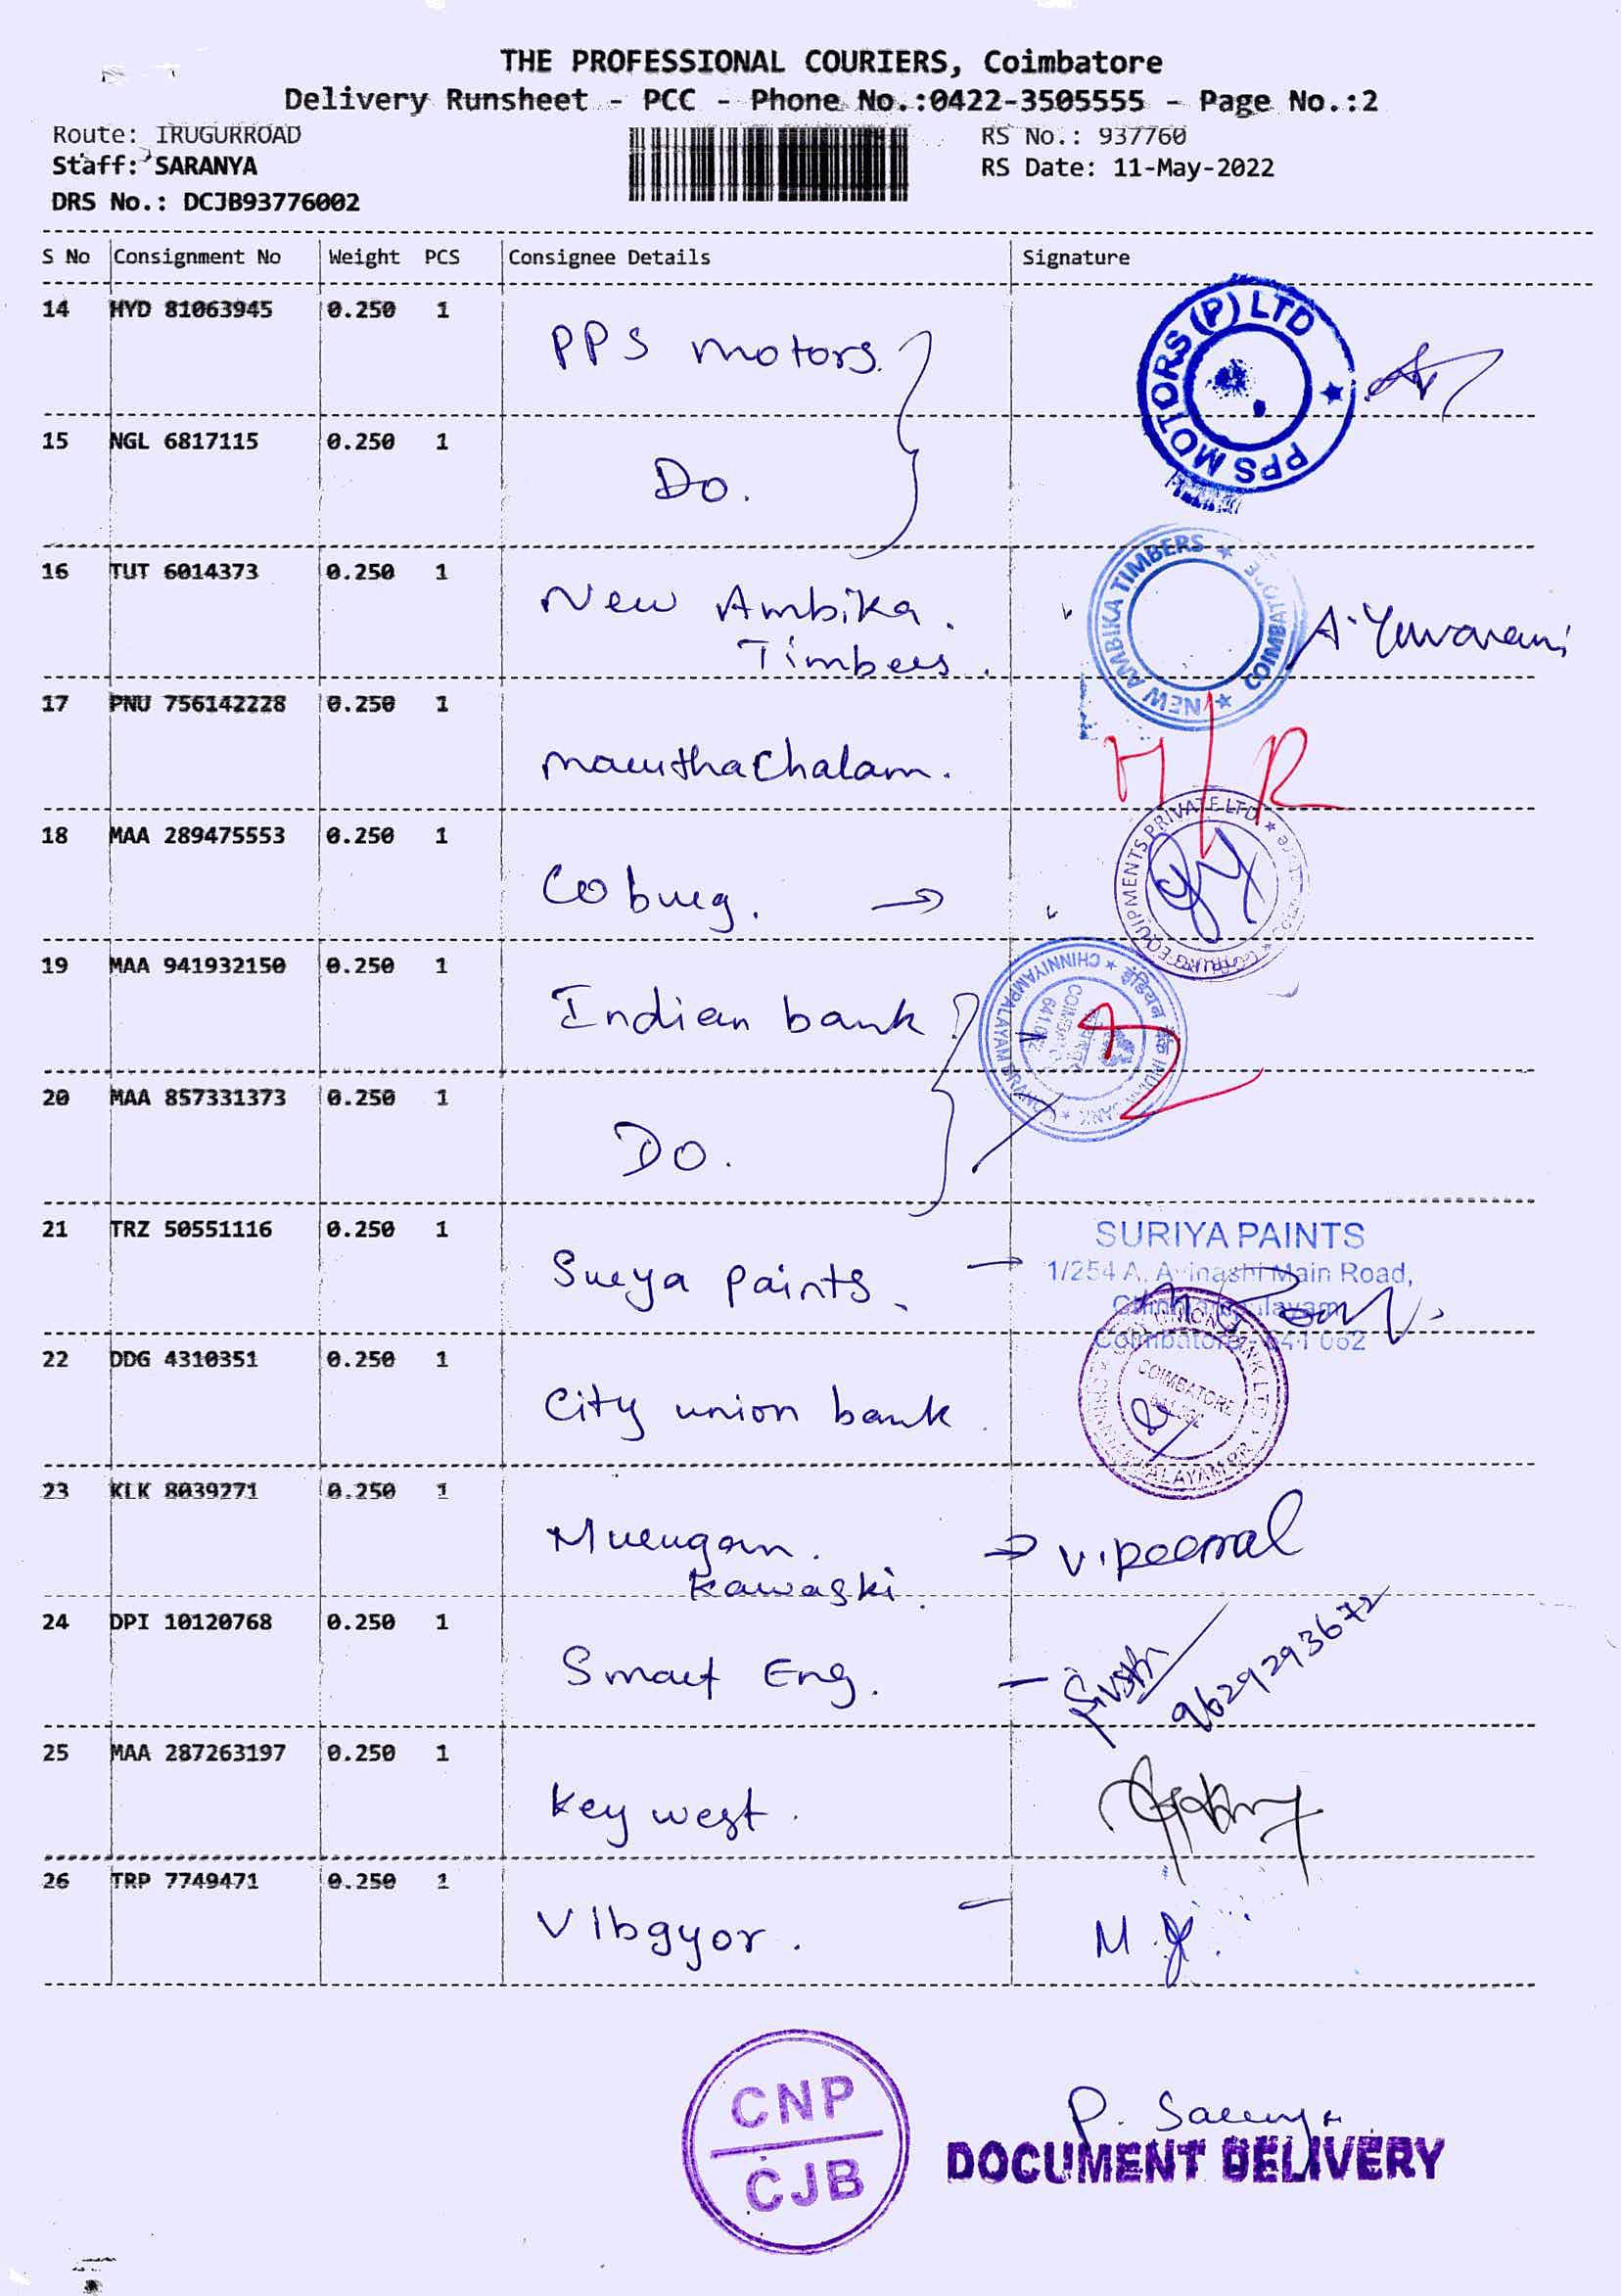 THE PROFESSIONAL COURIERS, Coimbatore
Delivery Runsheet - PCC - Phone No.:0422-3505555 - Page No.:2
Route: IRUGURROAD
RS No.: 937760
Staff: SARANYA
RS Date: 11-May-2022
DRS No.: DCJB93776002
S No Consignment No Weight PCS Consignee Details Signature
14 HYD 81063945 0.250 1
PPS motors.
PPS MOTORS (P) LTD
15 NGL 6817115 0.250 1
Do.
16 TUT 6014373 0.250 1
New Ambika.
Timbers.
NEW AMBIKA TIMBERS COIMBATORE
A. Yuvarani
17 PNU 756142228 0.250 1
maruthachalam.
H/R
18 MAA 289475553 0.250 1
Coburg.
EQUIPMENTS PRIVATE LTD
19 MAA 941932150 0.250 1
Indian bank
CHINNIYAMPALAYAM
इंडियन बैंक
20 MAA 857331373 0.250 1
Do.
21 TRZ 50551116 0.250 1
Surya Paints.
SURIYA PAINTS
1/254 A, Avinashi Main Road,
Coimbatore - 641 062
22 DDG 4310351 0.250 1
City union bank.
COIMBATORE
23 KLK 8039271 0.250 1
Murugan.
Kawaski.
24 DPI 10120768 0.250 1
Smart Eng.
9629293672
25 MAA 287263197 0.250 1
Key west.
26 TRP 7749471 0.250 1
VIbgyor.
CNP
CJB
P. Saranya
DOCUMENT DELIVERY